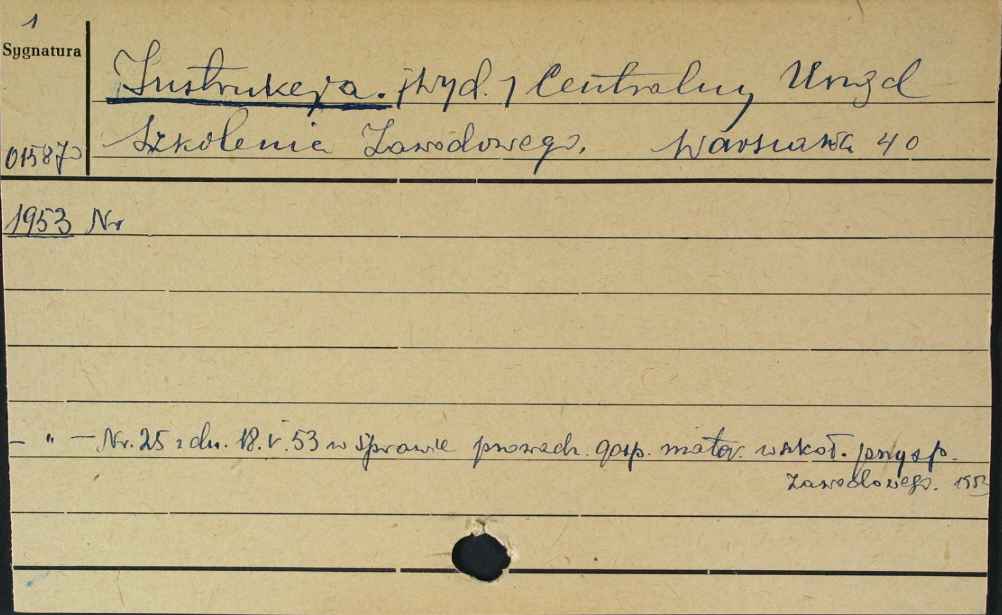 1
Sygnatura
Instrukcja. [Wyd.] Centralny Urząd
Szkolenia Zawodowego. Warszawa 40
015873
1953 Nr
– " – Nr. 25 z dn. 18.V.53 w sprawie prowadz. gosp. mater. w szkoł. przysp.
Zawodowego. 1953